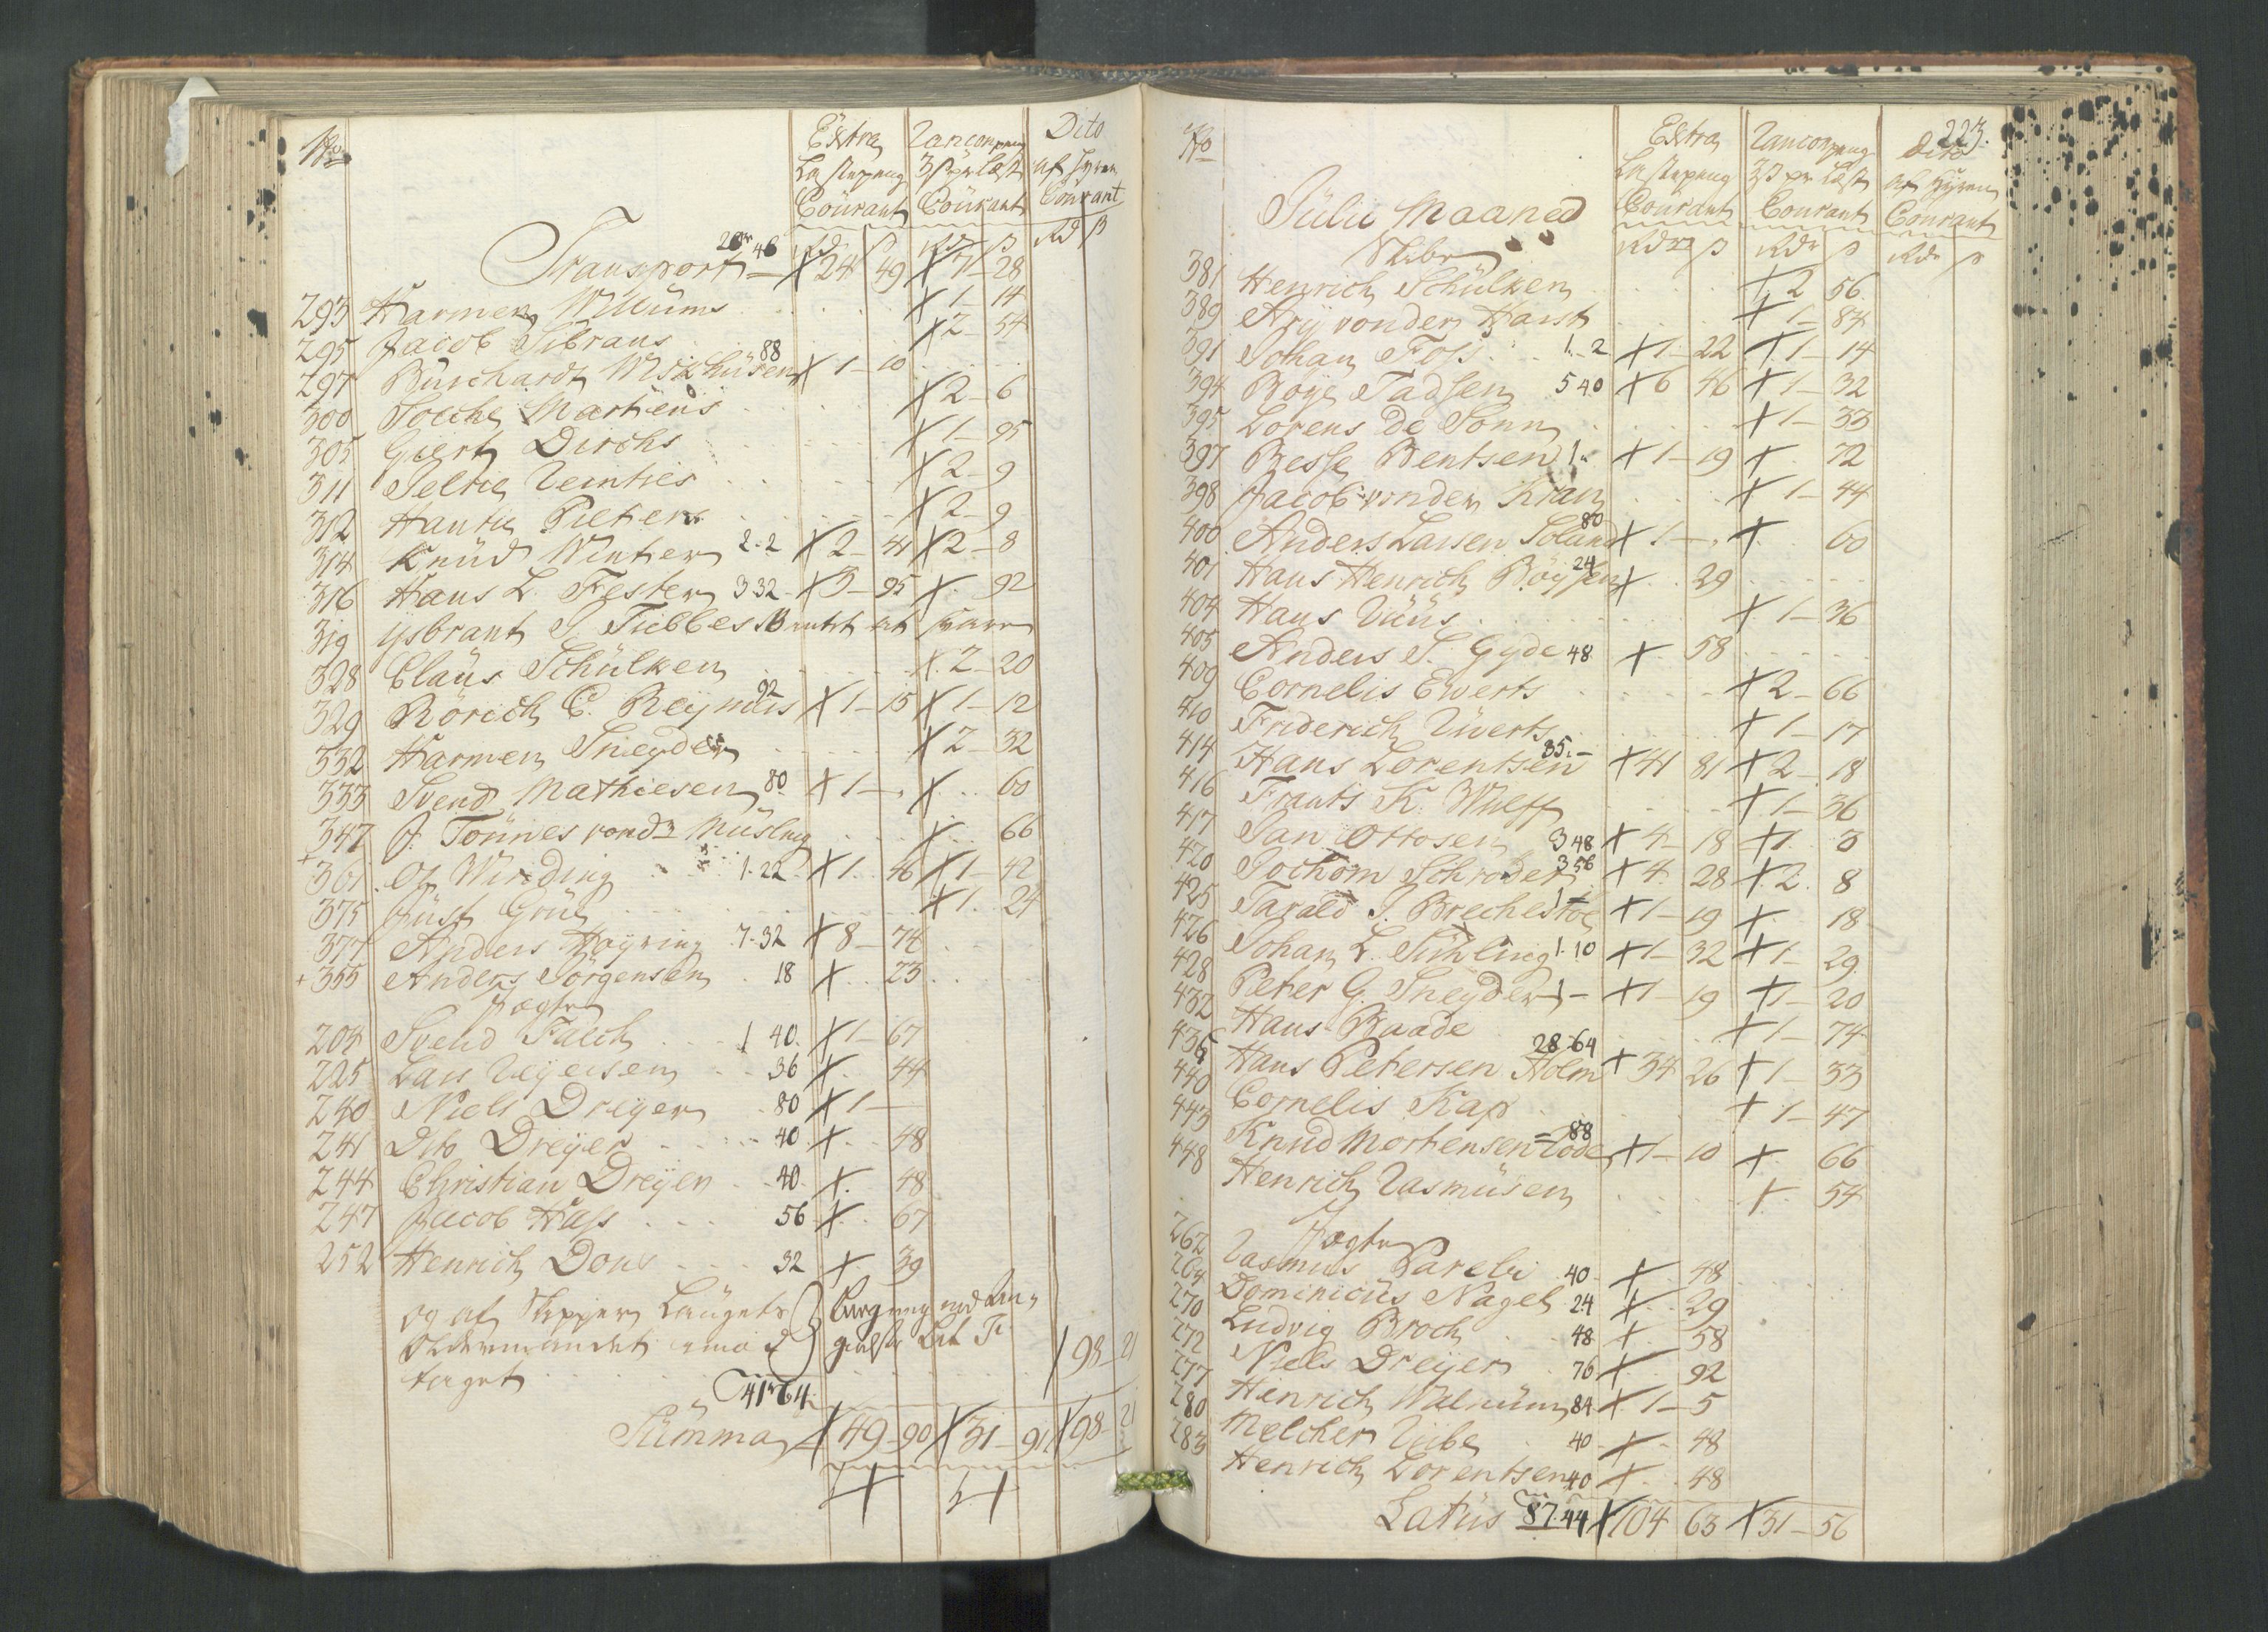 No
Extra Ranconpeng Dito
Lastepeng 3 β pr Læst af Hyren
Courant Courant Courant
Rdr β Rdr β Rd β
20 46
Transport X 24 49 X 7 - 28
293 Harmen Willums X 1 - 14
295 Jacob Sibrans X 2 - 54
297 Burchardt Wishusen 88 X 1 - 10
300 Focke Martiens X 2 - 6
305 Giert Dirchs X 1 - 95
311 Jeltie Reinties X 2 - 9
312 Hantie Pieters X 2 - 9
314 Knud Winter 2-2 X 2 - 41 X 2 - 8
316 Hans L. Fester 3 32 X 3 - 95 X 92
319 ysbrant J. Tiebbes
328 Claus Schülken X 2 - 20
329 Rörich C. Reynders 92 X 1 - 15 X 1 - 12
332 Harmen Sneyder X 2 - 32
333 Svend Mathiesen 80 X 1 - X 60
347 J. Tönnes vondr Müslug X 66
+ 361 Of. Winding 1-22 X 1 46 X 1 - 42
375 Just Grue X 1 24
377 Anders Høyring 7-32 X 8 - 74
+ 355 Anders Jörgensen 18 X 23
Jægter
204 Svend Falch 1 40 X 1 - 67
225 Lars Reyersen 36 X 44
240 Niels Dreyer 80 X 1 -
241 Dito Dreyer 40 X 48
244 Christian Dreyer 40 X 48
247 Jacob Hass 56 X 67
252 Henrich Dons 32 X 39
og af Skipper Laugets
Oldermandet imod
taget X 98 - 21
41 64
Summa X 49 - 90 X 31 - 91 X 98 - 21
223.
No
Extra Ranconpeng Dito
Lastepeng 3 β pr Læst af Hyren
Courant Courant Courant
Julii Maaned
Rdr β Rdr β Rdr β
Skibe
381 Henrich Schülken X 2 56
389 Ary vonder Harst X 1 - 84
391 Johan Foss 1-2 X 1 - 22 X 1 - 14
394 Boye Tadsen 5 40 X 6 46 X 1 - 32
395 Lorens de Sonn X 1 - 33
397 Besse Bentsen 1 X 1 - 19 X 72
398 Jacob vonder Kran X 1 - 44
400 Anders Larsen Toland 80 X 1 - X 60
401 Hans Henrich Böysen 24 X 29
404 Hans Düus X 1 - 36
405 Anders S. Gyde 48 X 58
409 Cornelis Ewerts X 2 - 66
410 Friderich Üwerts X 1 - 17
414 Hans Lorentsen 35 - X 41 81 X 2 - 18
416 Frants K. Wulff X 1 - 36
417 Jan Ottosen 3 48 X 4 - 18 X 1 3
420 Jochom Schroder 3 56 X 4 28 X 2 8
425 Tarald J. Brechestoe 1 - X 1 - 19 X 18
426 Johan L. Sühling 1-10 X 1 - 32 X 1 - 29
428 Peter G. Sneyder 1 - X 1 - 19 X 1 - 20
432 Hans Baade X 1 - 74
436 Hans Petersen Holm 28-64 X 34 26 X 1 - 33
440 Cornelis Kap X 1 - 47
443 Knud Mortensen Rode 88 X 1 - 10 X 66
448 Henrich Rasmusen X 54
Jægter
262 Rasmus Parebi 40 X 48
264 Dominicus Nagel 24 X 29
270 Ludvig Broch 48 X 58
272 Niels Dreyer 76 X 92
277 Hinrich Walnum 84 X 1 - 5
280 Melcher Vibe 40 X 48
283 Henrich Lorentsen 40 X 48
Latus 87.44 X 104 63 X 31 - 56